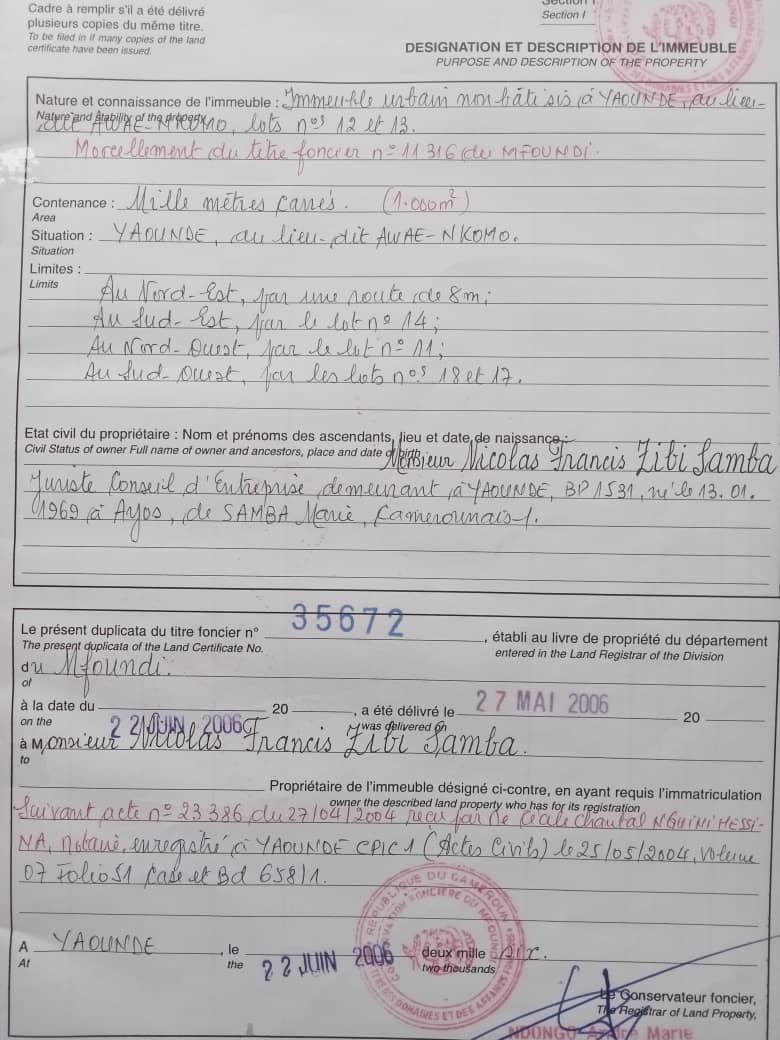 Cadre à remplir s'il a été délivré
plusieurs copies du même titre.
To be filed in if many copies of the land
certificate have been issued.
Section I
Section I
DESIGNATION ET DESCRIPTION DE L'IMMEUBLE
PURPOSE AND DESCRIPTION OF THE PROPERTY
Nature et connaissance de l'immeuble : Immeuble urbain non bâti sis à YAOUNDE, au lieu-
Nature and stability of the property
dit AWAE-NKOMO, lots nos 12 et 13.
Morcellement du titre foncier n° 11316 du MFOUNDI.
Contenance : Mille mètres carrés. (1.000m²)
Area
Situation : YAOUNDE, au lieu-dit AWAE-NKOMO.
Situation
Limites :
Limits
Au Nord-Est, par une route de 8m;
Au Sud-Est, par le lot n° 14;
Au Nord-Ouest, par le lot n° 11;
Au Sud-Ouest, par les lots nos 18 et 17.
Etat civil du propriétaire : Nom et prénoms des ascendants, lieu et date de naissance :
Civil Status of owner Full name of owner and ancestors, place and date of birth
Monsieur Nicolas Francis Zibi Samba
Juriste Conseil d'Entreprise demeurant à YAOUNDE, BP 1531, né le 13.01.
1969 à Ayos, de SAMBA Marie, Camerounais-/.
Le présent duplicata du titre foncier n° 35672, établi au livre de propriété du département
The present duplicata of the Land Certificate No. entered in the Land Registrar of the Division
du Mfoundi.
of
à la date du 22 JUIN 2006 20, a été délivré le 27 MAI 2006 20
on the was delivered on
à Monsieur Nicolas Francis Zibi Samba.
to
Propriétaire de l'immeuble désigné ci-contre, en ayant requis l'immatriculation
owner the described land property who has for its registration
Suivant acte n° 23386 du 27/04/2004 reçu par Me Cécile Chantal NGUINI MESSI-
NA, notaire, enregistré à YAOUNDE CPIC 1 (Actes Civils) le 25/05/2004, Volume
07 Folio 51 Case et Bd 658/1.
A YAOUNDE, le 22 JUIN 2006 deux mille six.
At the two thousands
REPUBLIQUE DU CAMEROUN
Le Conservateur foncier,
The Registrar of Land Property,
NDONGO André Marie